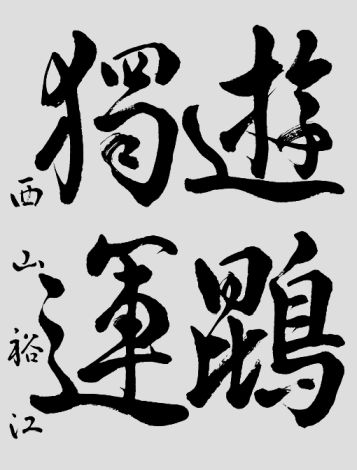 遊鵾
獨運
西山裕江